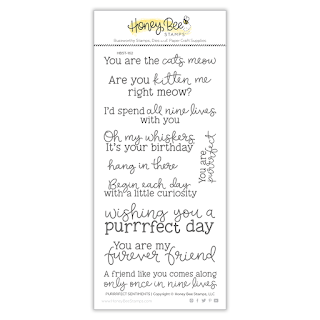 Honey Bee
STAMPS
Trustworthy Stamps, Dies and Paper Craft Supplies
You are the cats meow
Are you kitten me
right meow?
I'd spend all nine lives
with you
Oh my whiskers
It's your birthday
You are
purrrfect
hang in there
Begin each day
with a little curiosity
wishing you a
purrrfect day
You are my
furever friend
A friend like you comes along
only once in nine lives
PURRRFECT SENTIMENTS | Copyright © Honey Bee Stamps, LLC